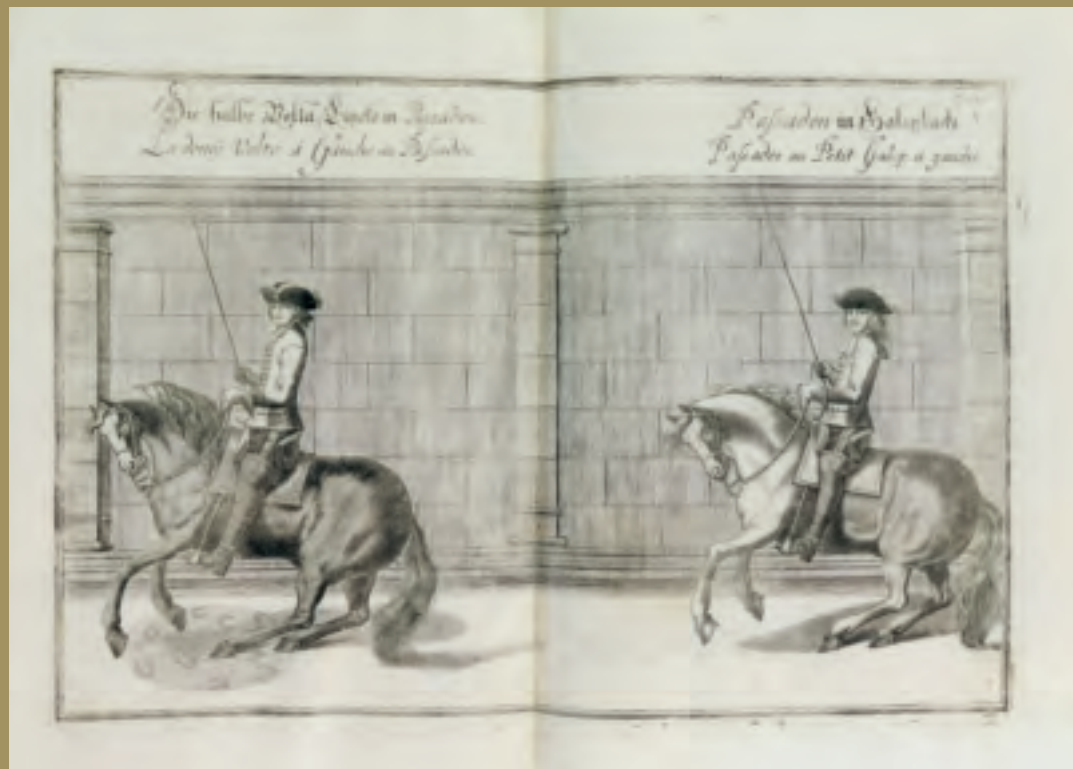 Die halbe Volta Lincks in Passaden
La demie Volte à Gauche en Passades
Passaden in
Passades au Petit Galop a gauche